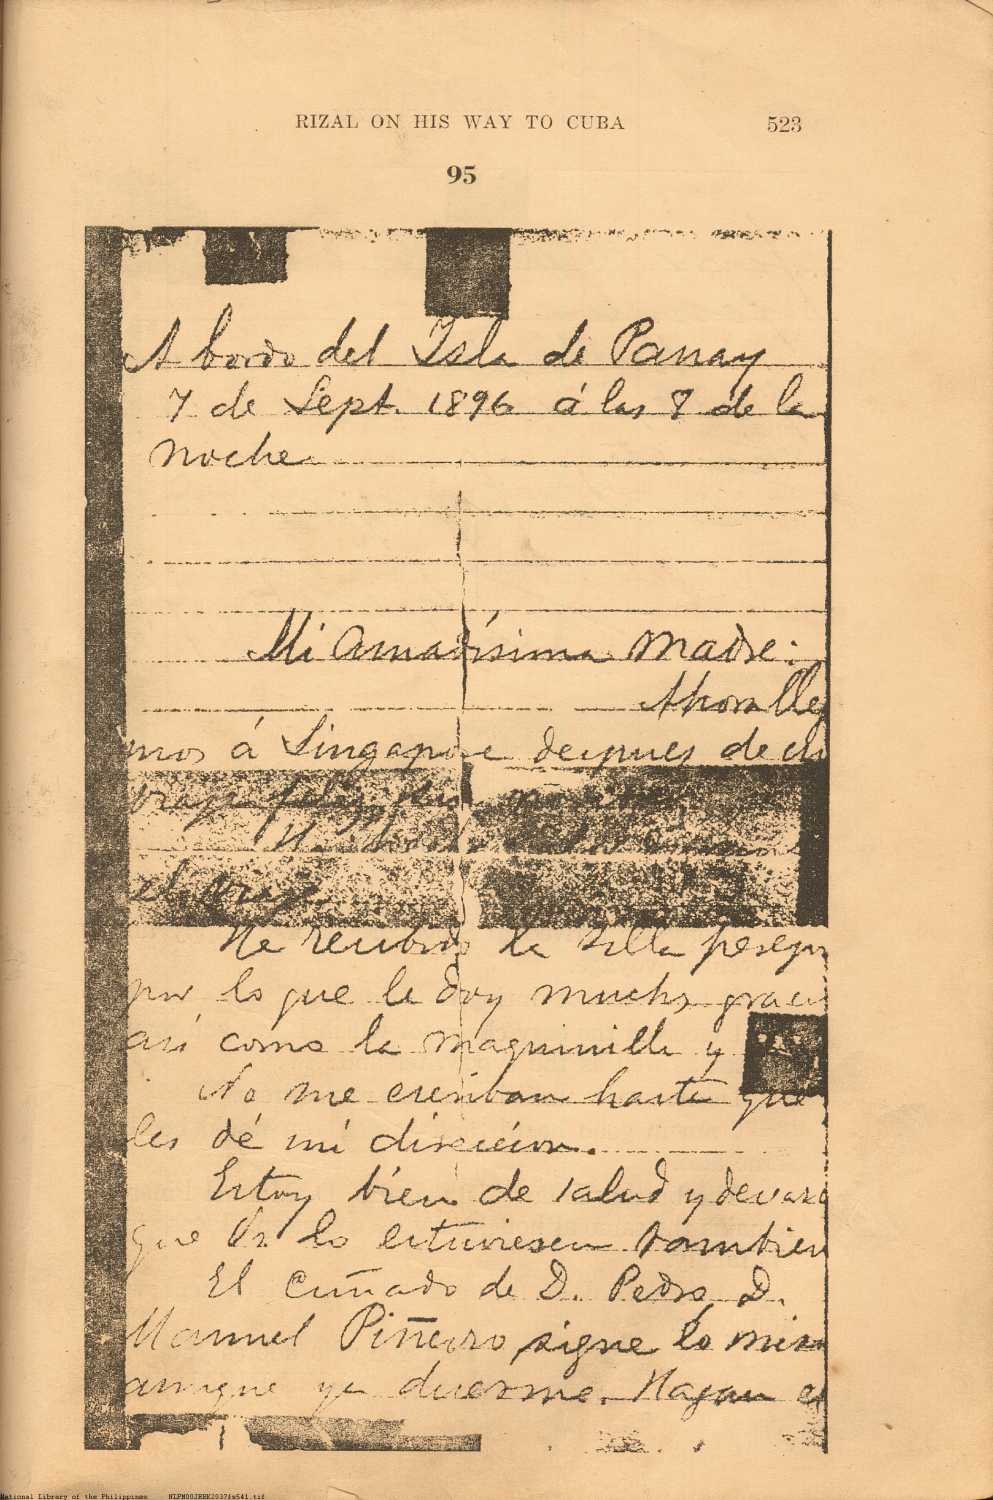 RIZAL ON HIS WAY TO CUBA 523
95
A bordo del Isla de Panay
7 de Sept. 1896 á las 8 de la
noche
Mi Amadísima Madre:
Ahora lleg
mos á Singapore despues de un
viaje feliz
el viaje.
He recibido la silla
por lo que le doy muchas graci
así como la maquinilla y
No me escriban hasta que
les dé mi direccion.
Estoy bién de salud y desearé
que Vs. lo estuviesen tambien
El cuñado de D. Pedro, D.
Manuel Piñeiro sigue lo mism
aunque ya duerme. Hagan el
National Library of the Philippines